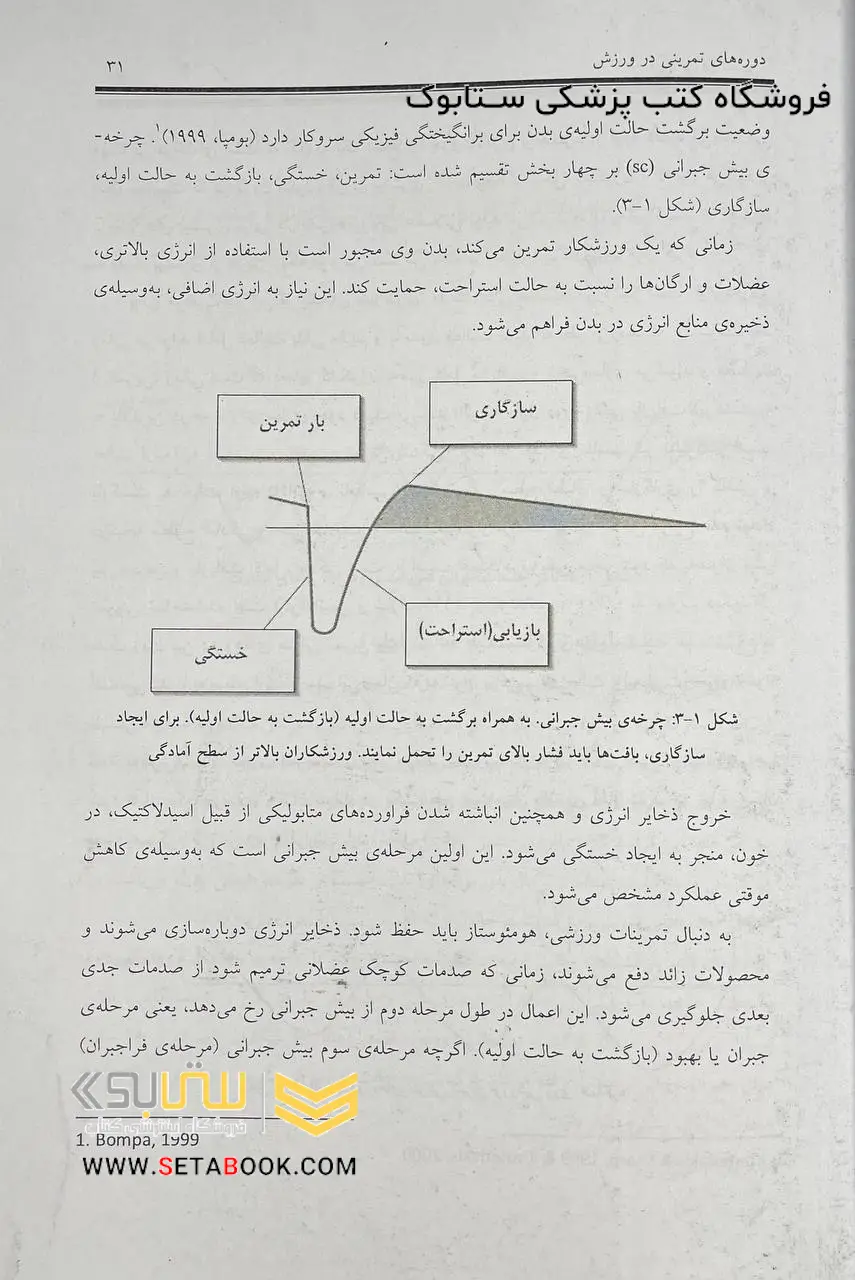 دوره‌های تمرینی در ورزش
۳۱
فروشگاه کتب پزشکی ستابوک
وضعیت برگشت حالت اولیه‌ی بدن برای برانگیختگی فیزیکی سروکار دارد (بومپا، ۱۹۹۹)۱. چرخه-
ی بیش جبرانی (sc) بر چهار بخش تقسیم شده است: تمرین، خستگی، بازگشت به حالت اولیه،
سازگاری (شکل ۱-۳).
زمانی که یک ورزشکار تمرین می‌کند، بدن وی مجبور است با استفاده از انرژی بالاتری،
عضلات و ارگان‌ها را نسبت به حالت استراحت، حمایت کند. این نیاز به انرژی اضافی، به‌وسیله‌ی
ذخیره‌ی منابع انرژی در بدن فراهم می‌شود.
سازگاری
بار تمرین
بازیابی(استراحت)
خستگی
شکل ۱-۳: چرخه‌ی بیش جبرانی. به همراه برگشت به حالت اولیه (بازگشت به حالت اولیه). برای ایجاد
سازگاری، بافت‌ها باید فشار بالای تمرین را تحمل نمایند. ورزشکاران بالاتر از سطح آمادگی
خروج ذخایر انرژی و همچنین انباشته شدن فراورده‌های متابولیکی از قبیل اسیدلاکتیک، در
خون، منجر به ایجاد خستگی می‌شود. این اولین مرحله‌ی بیش جبرانی است که به‌وسیله‌ی کاهش
موقتی عملکرد مشخص می‌شود.
به دنبال تمرینات ورزشی، هومئوستاز باید حفظ شود. ذخایر انرژی دوباره‌سازی می‌شوند و
محصولات زائد دفع می‌شوند، زمانی که صدمات کوچک عضلانی ترمیم شود از صدمات جدی
بعدی جلوگیری می‌شود. این اعمال در طول مرحله دوم از بیش جبرانی رخ می‌دهد، یعنی مرحله‌ی
جبران یا بهبود (بازگشت به حالت اولیه). اگرچه مرحله‌ی سوم بیش جبرانی (مرحله‌ی فراجبران)
ستابوک
فروشگاه اینترنتی کتاب
1. Bompa, 1999
WWW.SETABOOK.COM